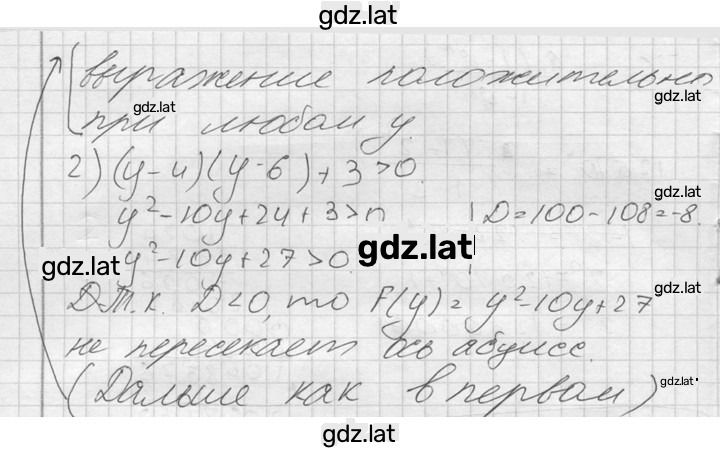 gdz.lat
выражение положительно
gdz.lat
gdz.lat
при любом y.
2) (y-4)(y-6)+3>0.
gdz.lat
y²-10y+24+3>0 | D=100-108=-8.
gdz.lat
gdz.lat y²-10y+27>0.
gdz.lat
Т.к. D<0, то F(y)= y²-10y+27
не пересекает ось абцисс.
(Дальше как в первом)
gdz.lat
gdz.lat